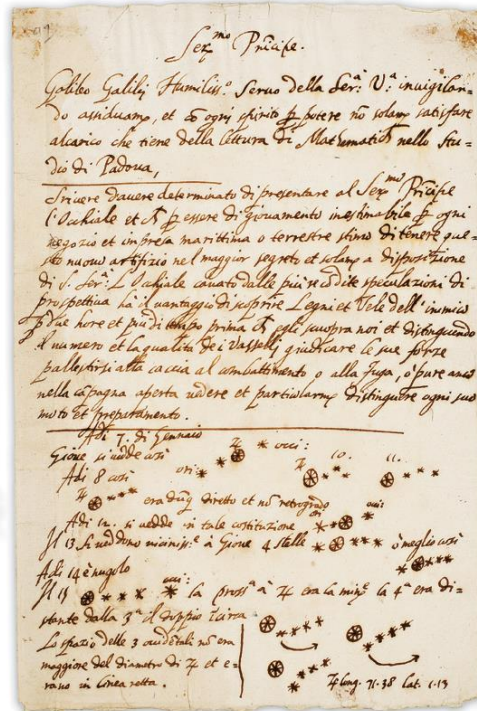 Ser.mo Prīcipe.
Galileo Galilej Humiliss.o Seruo della Ser.a V.a inuigilan-
do assiduam.e, et cō ogni spirito p potere nō solam.e satisfare
alcarico che tiene della lettura di Mathematich nello Stu-
dio di Padoua,
Scriuere dauere determinato di presentare al Ser.mo Prīcipe
l'Occhiale et p essere di giouamento inestimabile p ogni
negozio et impresa marittima o terrestre stimo di tenere que-
sto nuouo artifizio nel maggior segreto et solam.e a disposizione
di S. Ser.a L'Occhiale cauato dalle piu recōdite speculazioni di
prospettiua hà il uantaggio di scoprire Legni et Vele dell'inimico
p due hore et piu di tempo prima ch egli scuopra noi et distinguendo
il numero et la qualità de i Vasselli giudicare le sue forze
pallestirsi alla caccia al combattimento o alla fuga, o pure anco
nella cāpagna aperta uedere et particolarm.e distinguere ogni suo
moto et preparamento.
Adi 7. di Gennaio
Gioue si uedde così ♃ occi:
Adi 8 così ori: ♃ 10. 11.
era dūq diretto et nō retrogrado
Adi 12. si uedde in tale costituzione ori occi:
Il 13 si ueddono uiciniss.e à Gioue 4 stelle ò meglio così
Adi 14 è nugolo
Il 15 occi: la pross.a à ♃ era la min.e la 4.a era di-
stante dalla 3.a il doppio circa
Lo spazio delle 3 occidētali nō era
maggiore del diametro di ♃ et e-
rano in linea retta.
♃ long. 71.38 lat. 1.13